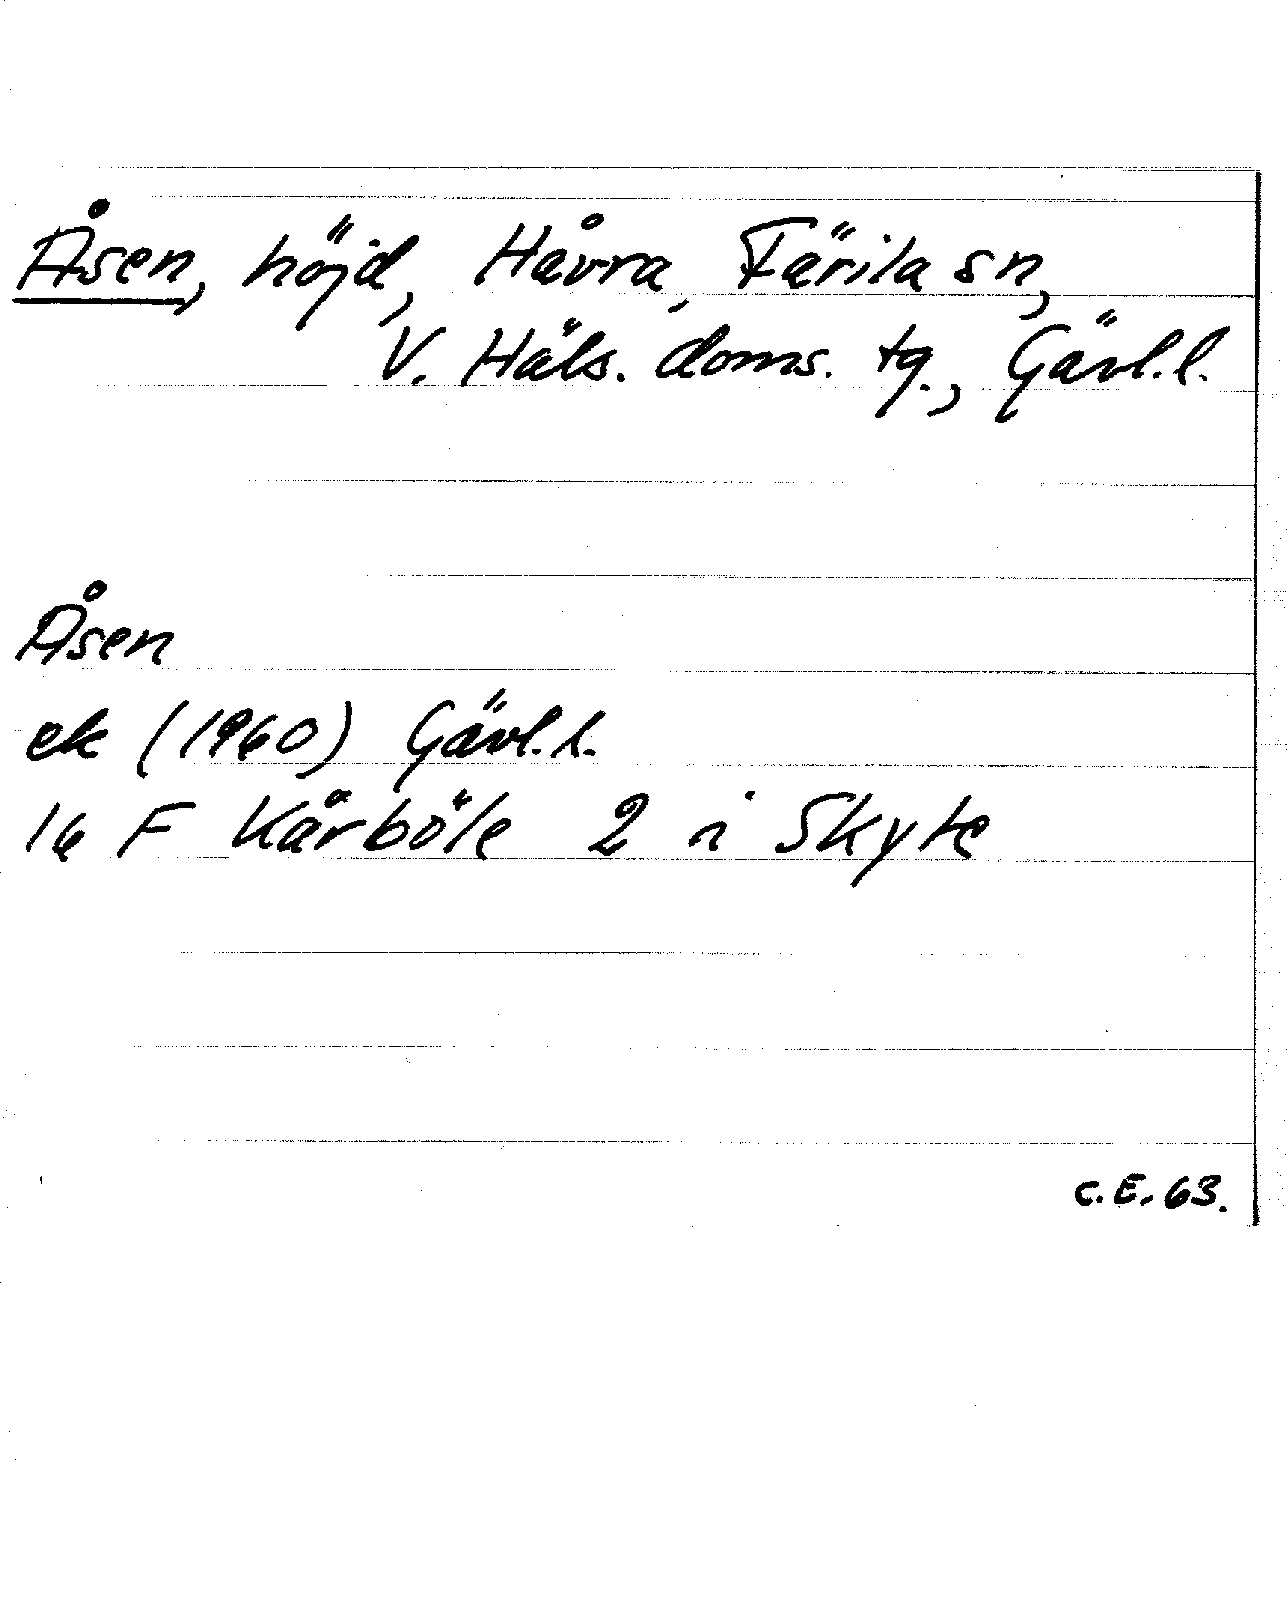 Åsen, höjd, Håvra, Färila sn,
V. Häls. doms. tg., Gävl. l.
Åsen
ek (1960) Gävl. l.
16 F Kårböle 2 i Skyte
C. E. 63.